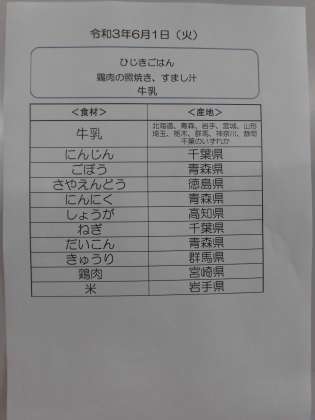 令和3年6月1日（火）
ひじきごはん
鶏肉の照焼き、すまし汁
牛乳
＜食材＞ ＜産地＞
牛乳 北海道、青森、岩手、宮城、山形
埼玉、栃木、群馬、神奈川、静岡
千葉のいずれか
にんじん 千葉県
ごぼう 青森県
さやえんどう 徳島県
にんにく 青森県
しょうが 高知県
ねぎ 千葉県
だいこん 青森県
きゅうり 群馬県
鶏肉 宮崎県
米 岩手県